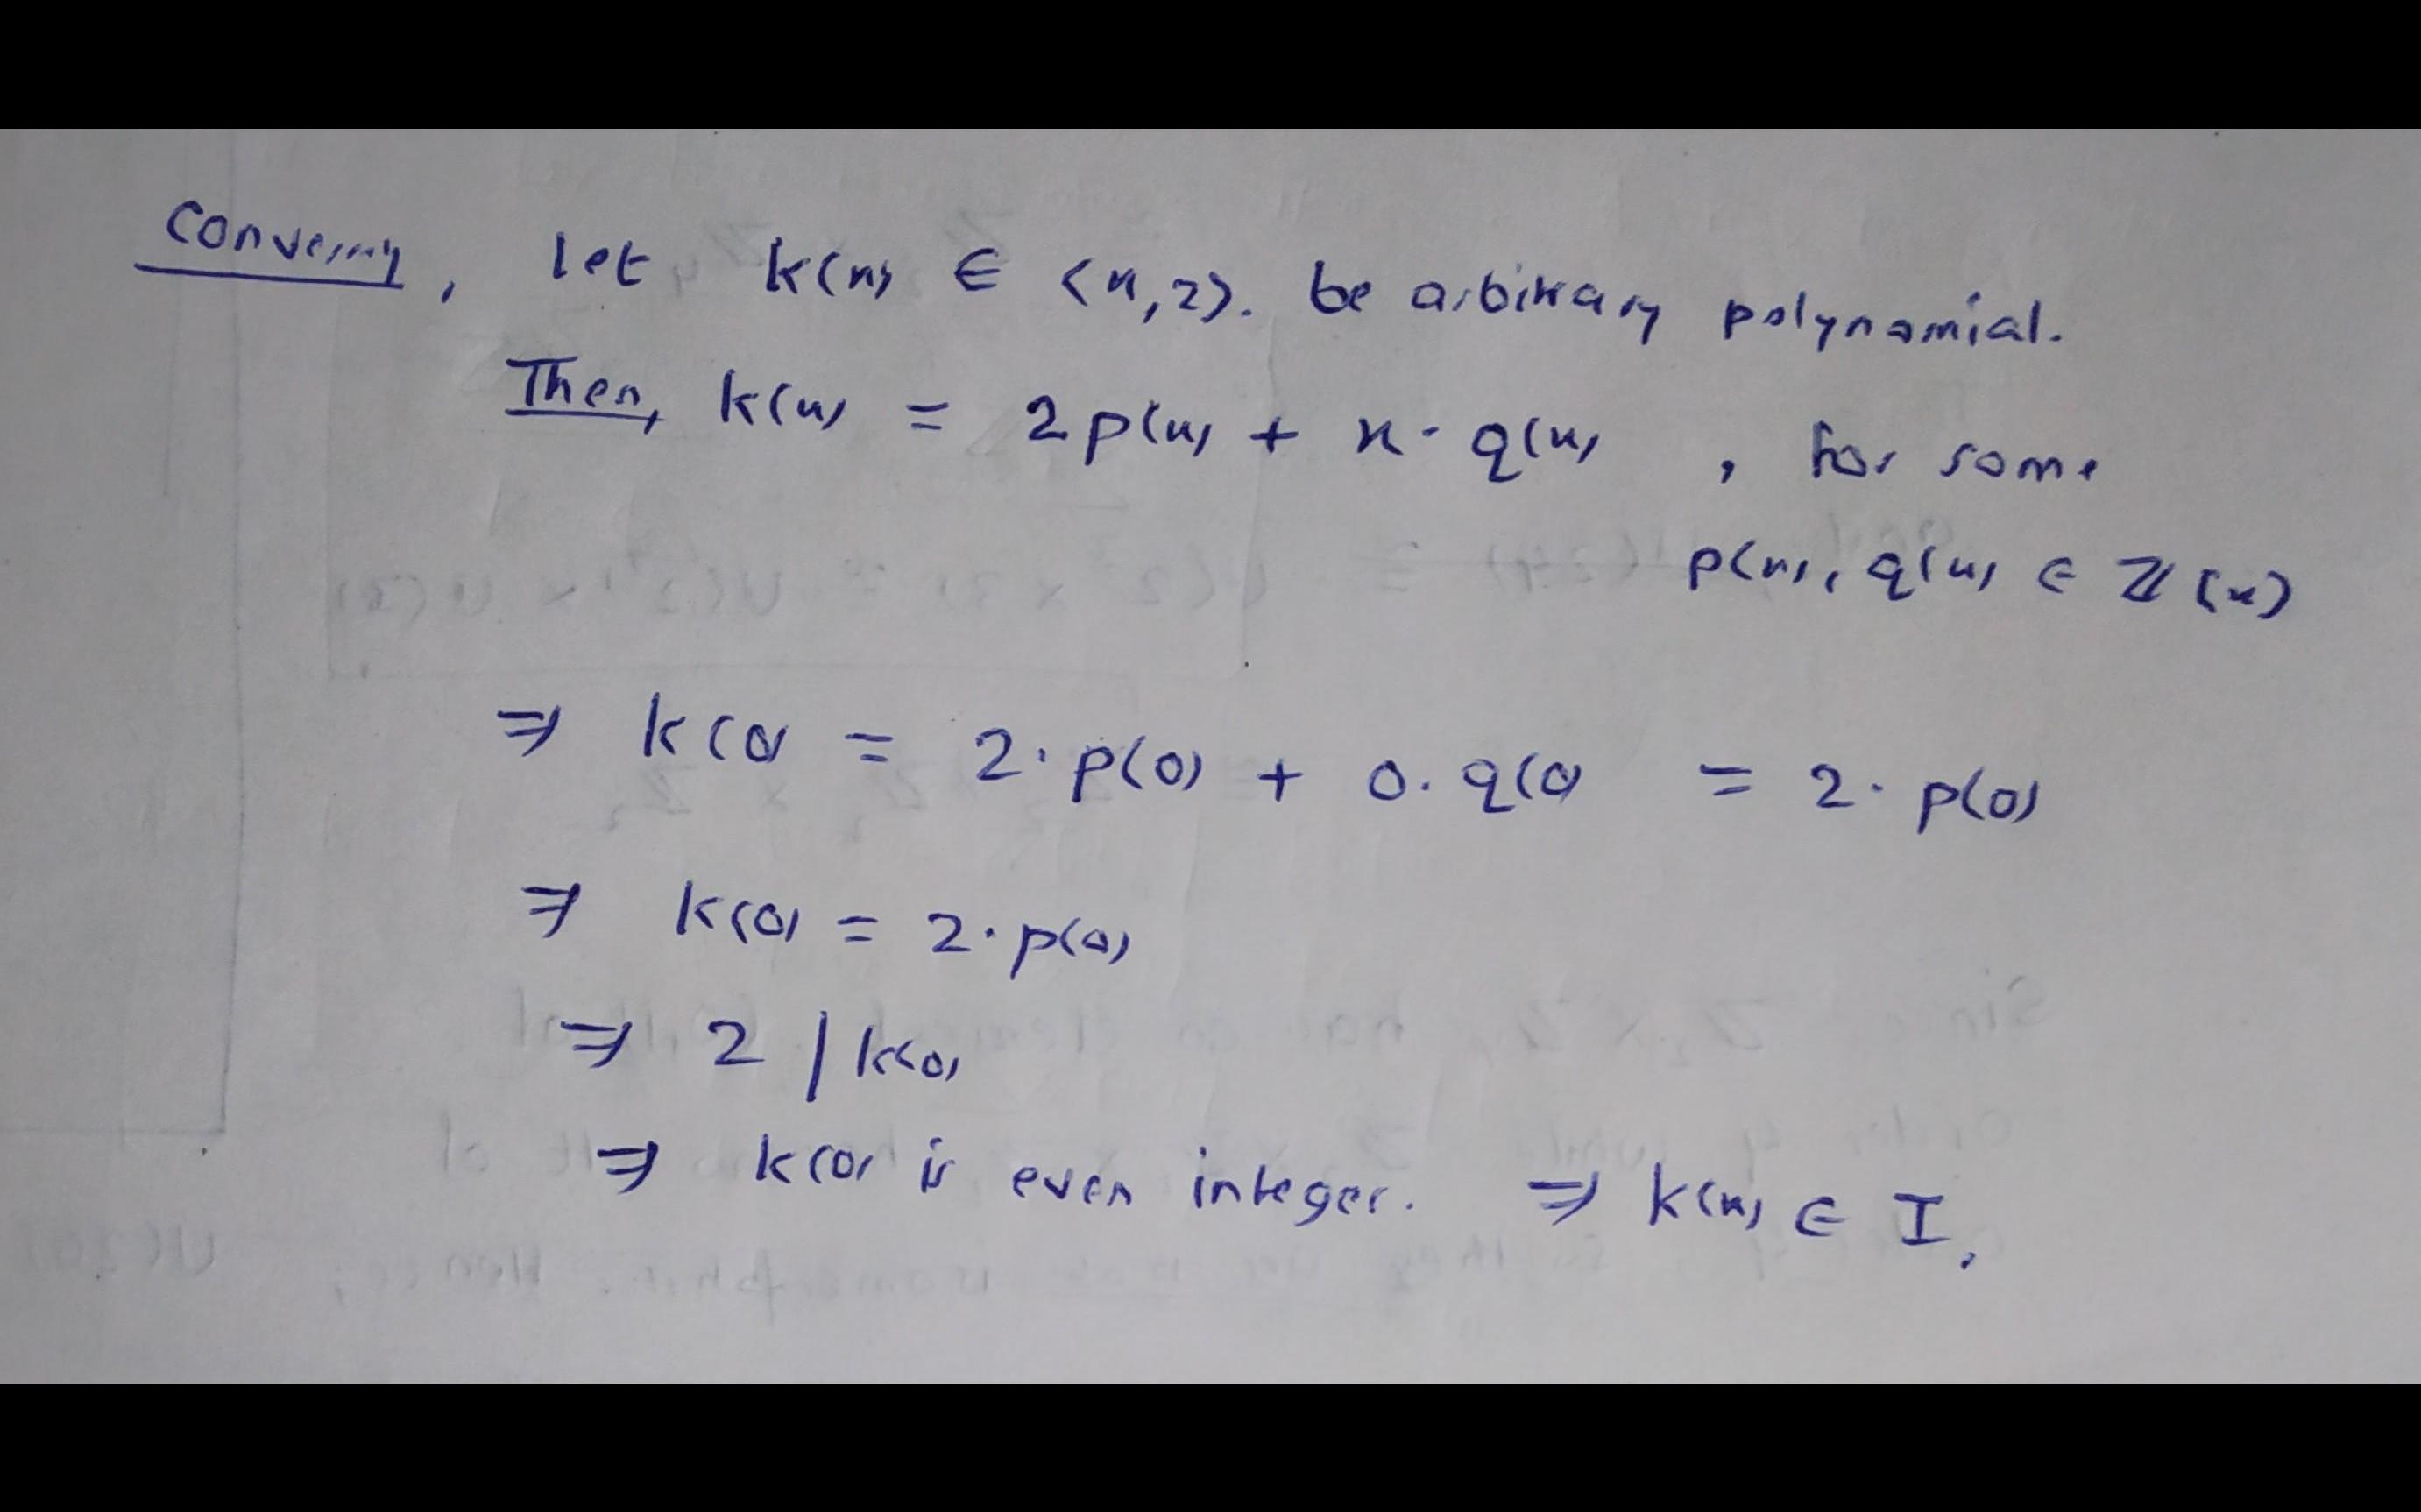 Conversely, let k(x) ∈ <x,2>. be arbitrary polynomial.
Then, k(x) = 2p(x) + x· q(x) , for some
p(x), q(x) ∈ ℤ[x]
⇒ k(0) = 2·p(0) + 0. q(0) = 2· p(0)
⇒ k(0) = 2·p(0)
⇒ 2 | k(0)
⇒ k(0) is even integer. ⇒ k(x) ∈ I.